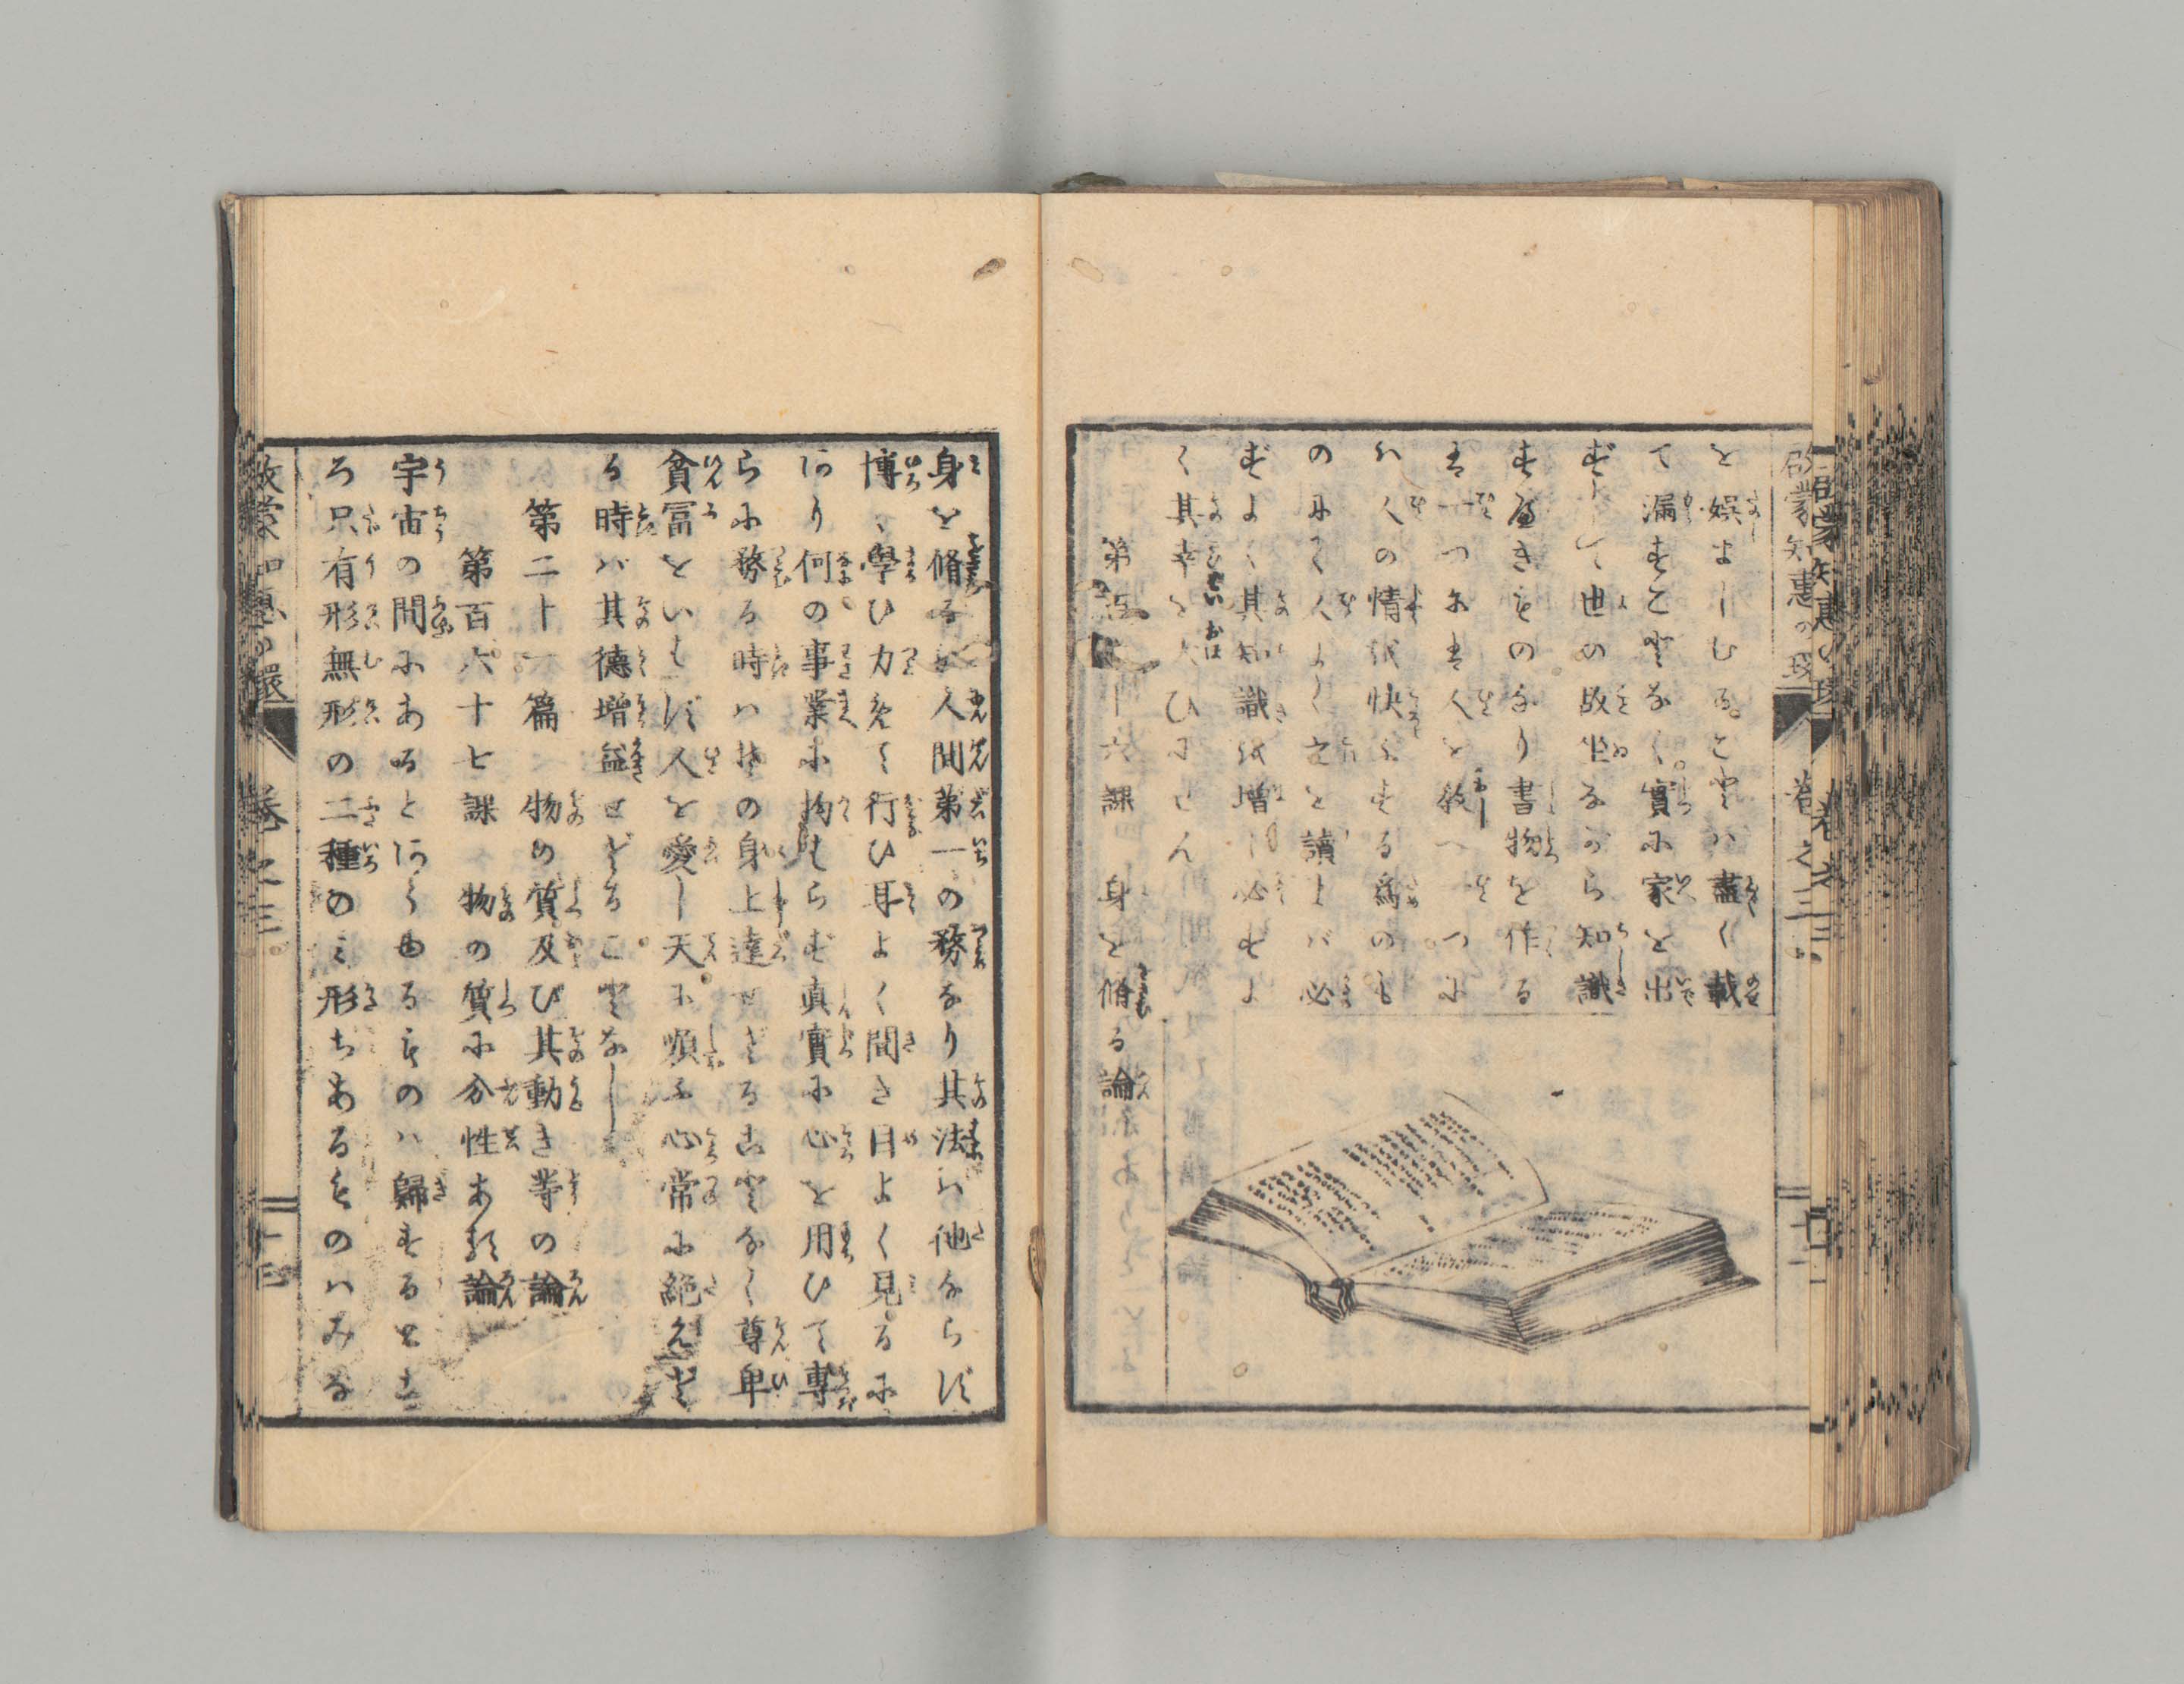 啓蒙知惠の環 卷之三
を娯ましむることハ盡く載
て漏すことなく實に家を出
ずして世の故坐ながら知識
すべきものなり書物を作る
も一つにも人を教へ一つに
ハ人の情を快くする為のも
の
ずよく其知識を増し必ずよ
く其幸を大ひにせん
第百六十六課 身を脩る論
身を脩るが人間第一の務なり其法ハ他ならず
博く學び力めて行ひ耳よく聞き目よく見るに
あり何の事業に拘ハらず真實に心を用ひて專
らに務る時ハ其の身上達せざることなく尊卑
貧冨をいはず人を愛し天に順ふ心常に絶えざ
る時バ其德增益せざることなし
第二十一篇 物の質及び其動き等の論
第百六十七課 物の質に分性ある論
宇宙の間にあるとあらゆるものハ歸するとこ
ろ只有形無形の二種のミ形ちあるものハみな
啓蒙知惠の環 卷之三